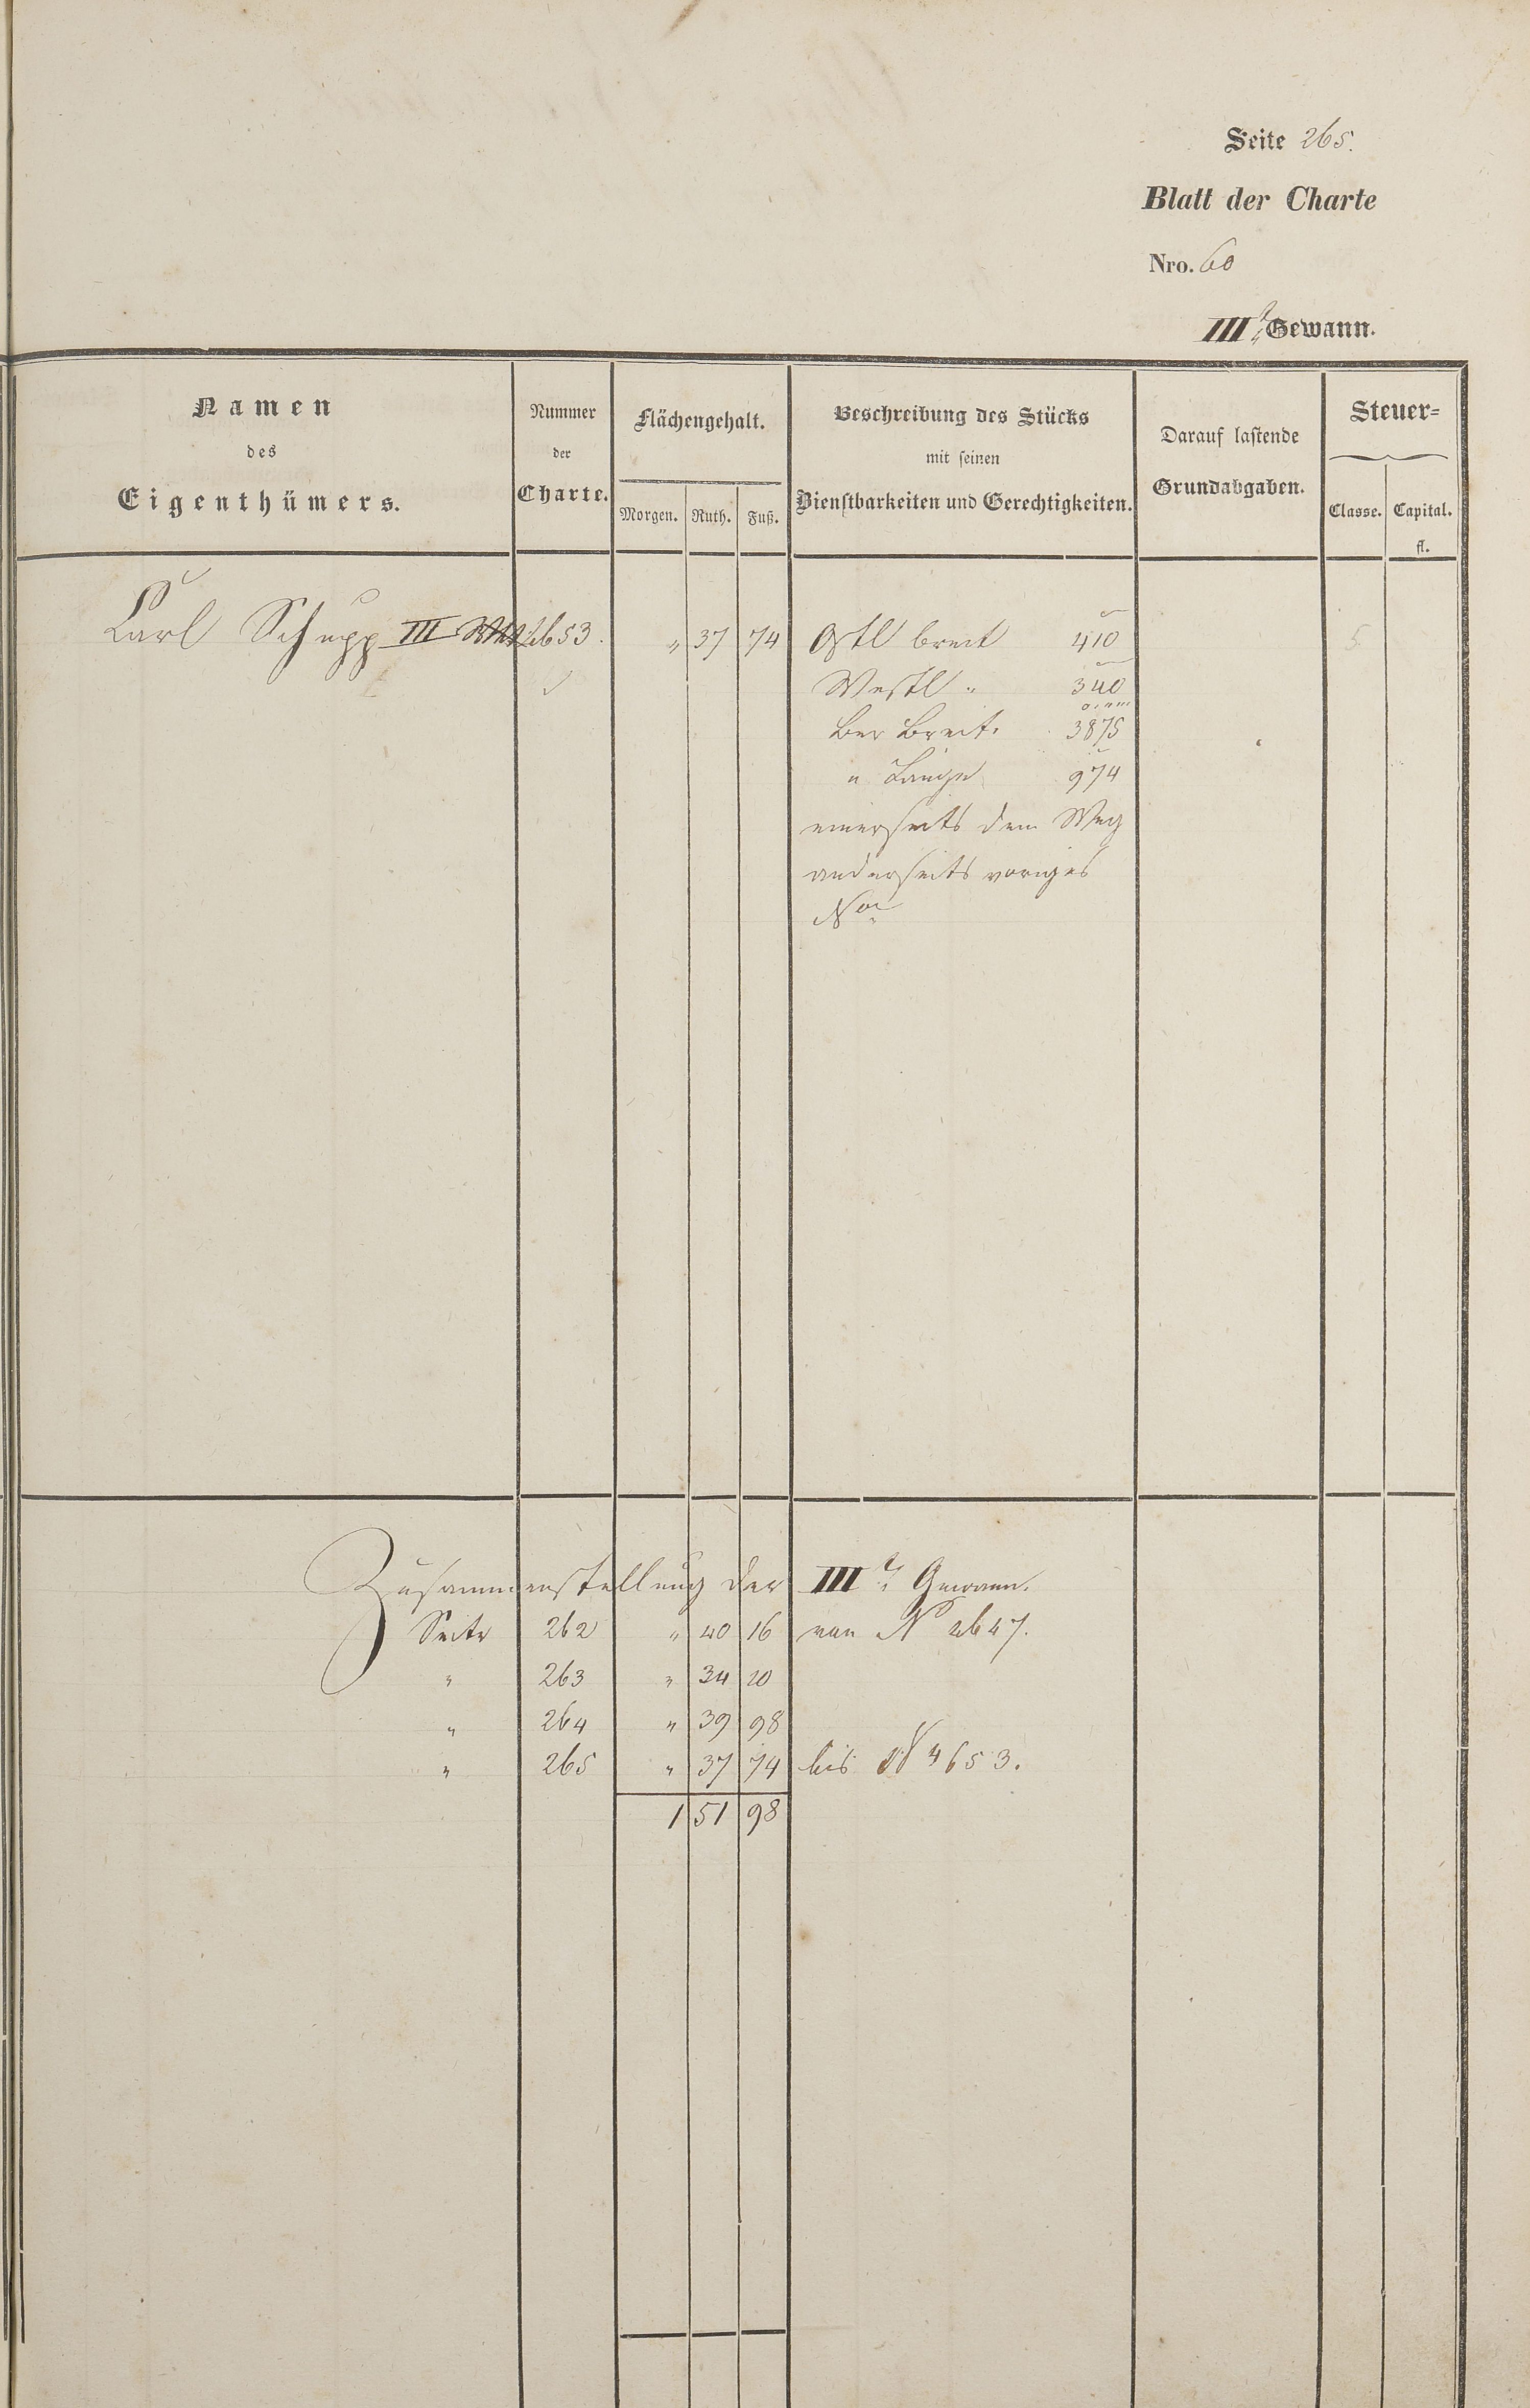 Seite 265.
Blatt der Charte
Nro. 60
III te Gewann.
Namen des Eigenthümers.
Nummer der Charte.
Flächengehalt.
Morgen. Ruth. Fuß.
Beschreibung des Stücks mit seinen Dienstbarkeiten und Gerechtigkeiten.
Darauf lastende Grundabgaben.
Steuer=
Classe. Capital.
fl.
Carl Schupp III 4653. " 37 74 Ostl breit 410 5
Westl " 340
Ber Breit. 3875
" Länge 974
einerseits dem Weg
anderseits voriges
No
Zusammenstellung der III te Gewann.
Seite 262 " 40 16 von No 4647.
" 263 " 34 10
" 264 " 39 98
" 265 " 37 74 bis No 4653.
1 51 98